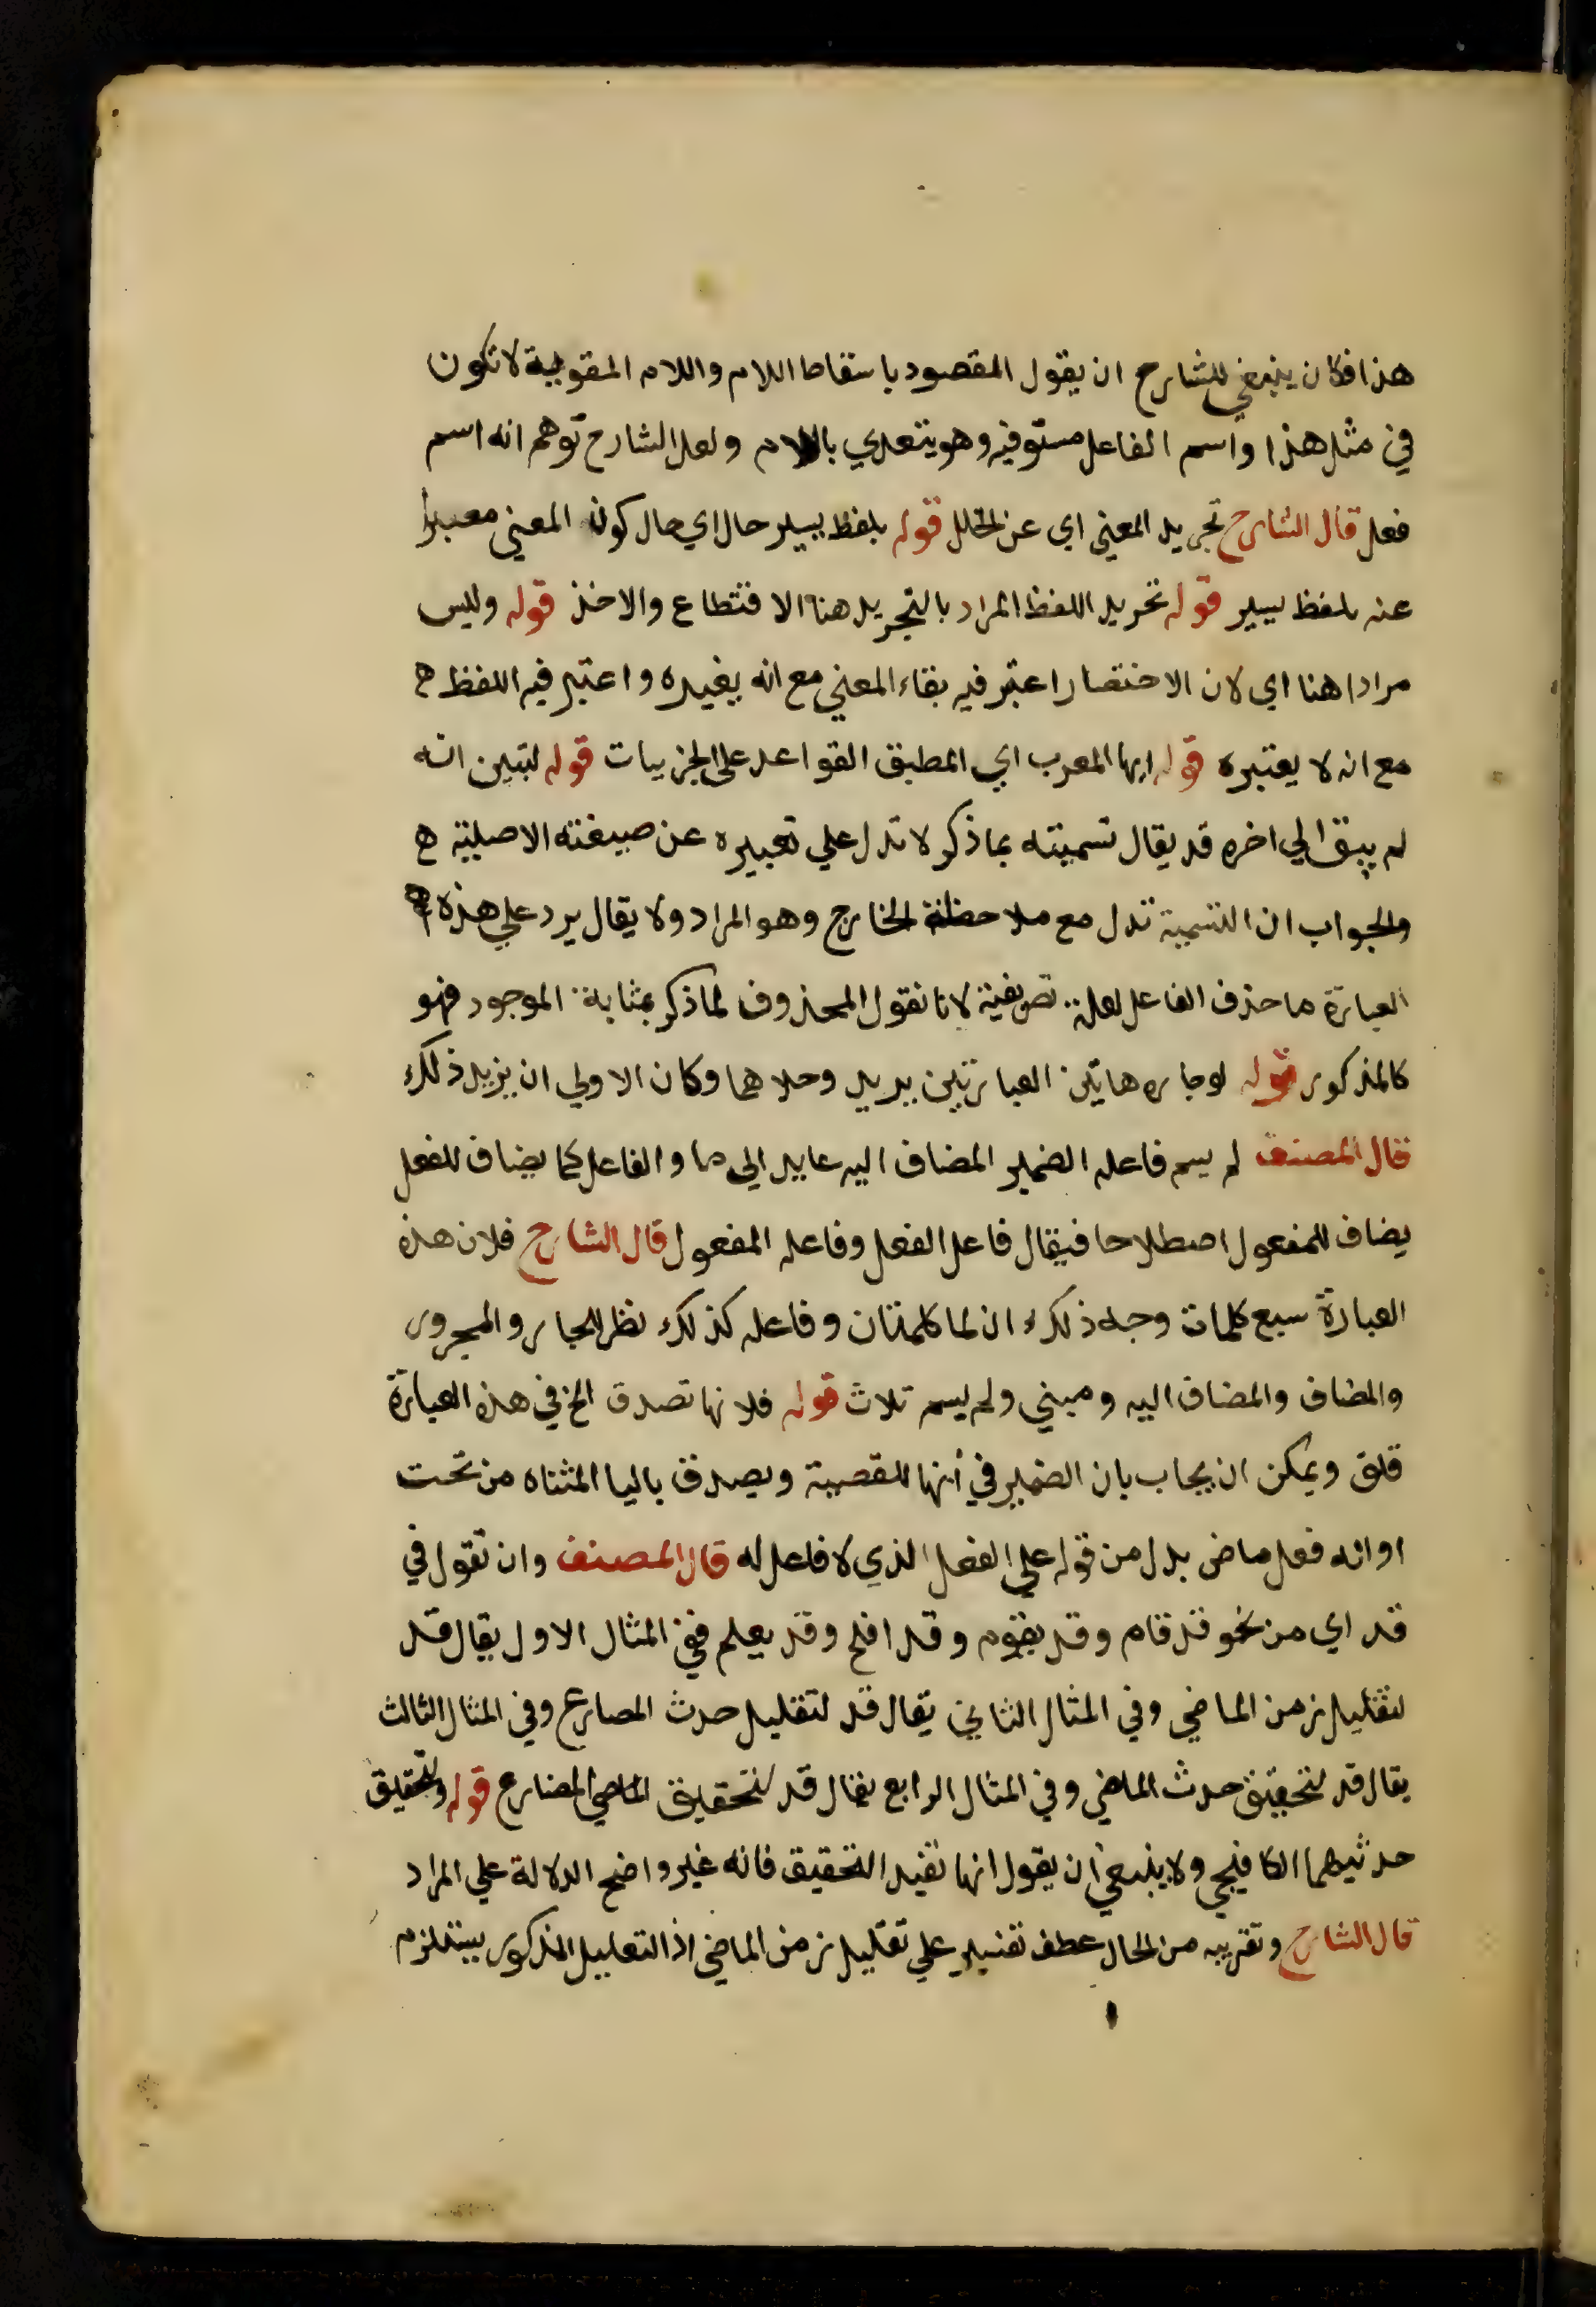 هذا فكان ينبغي للشارح ان يقول المقصود باسقاط اللام واللام المقوية لا تكون
في مثل هذا واسم الفاعل مستوفيه وهو يتعدي باللام ولعل الشارح توهم انه اسم
فعل قال الشارح تجريد المعني اي عن الخلل قوله بلفظ يسير حال اي حال كون المعني معبرا
عنه بلفظ يسير قوله تجريد اللفظ المراد بالتجريد هنا الاقتطاع والاخذ قوله وليس
مرادا هنا اي لان الاختصار اعتبر فيه بقاء المعني مع انه يغيره واعتبر فيه اللفظ
مع انه لا يعتبره قوله ايها المعرب اي المطبق القواعد علي الجزييات قوله لتبين انه
لم يبق الي اخره قد يقال تسميته بما ذكر لا تدل علي تغييره عن صيغته الاصلية
والجواب ان التسمية تدل مع ملاحظة الخارج وهو المراد ولا يقال يرد علي هذه
العبارة ما حذف الفاعل لعلة تصريفية لانا نقول المحذوف لما ذكر بمثابة الموجود فهو
كالمذكور قوله لوجازه هاتين العبارتين يريد وحلاهما وكان الاولي ان يزيد ذلك
قال المصنف لم يسم فاعله الضمير المضاف اليه عايد الي ما والفاعل كما يضاف للفعل
يضاف للمفعول اصطلاحا فيقال فاعل الفعل وفاعل المفعول قال الشارح فلان هذه
العبارة سبع كلمات وجه ذلك ان لما كلمتان وفاعله كذلك نظر للجار والمجرور
والمضاف والمضاف اليه ومبني ولم يسم ثلاث قوله فلانها تصدق الخ في هذه العبارة
قلق ويمكن ان يجاب بان الضمير في انها للقصة ويصدق باليا المثناه من تحت
او انه فعل ماض بدل من قوله علي الفعل الذي لا فاعل له قال المصنف وان تقول في
قد اي من نحو قد قام وقد يقوم وقد افلح وقد يعلم ففي المثال الاول يقال قد
لتقليل زمن الماضي وفي المثال الثاني يقال قد لتقليل حدث المضارع وفي المثال الثالث
يقال قد لتحقيق حدث الماضي وفي المثال الرابع يقال قد لتحقيق الماضي المضارع قوله ولتحقيق
حدثيهما الكافيجي ولا ينبغي ان يقول انها تفيد التحقيق فانه غير واضح الدلالة علي المراد
قال الشارح وتقريبه من الحال عطف تفسير علي تقليل زمن الماضي اذ التعليل المذكور يستلزم